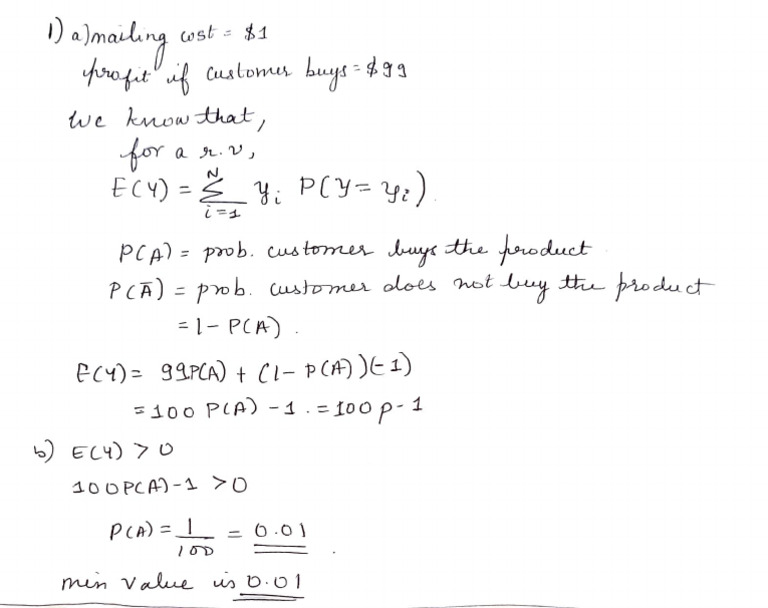 1) a) mailing cost = $1
profit if customer buys = $99
We know that,
for a r.v,
E(Y) = N Σ i=1 yi P(Y = yi).
P(A) = prob. customer buys the product
P(Ā) = prob. customer does not buy the product
= 1 - P(A).
E(Y) = 99P(A) + (1 - P(A))(-1)
= 100 P(A) - 1. = 100p - 1
b) E(Y) > 0
100P(A) - 1 > 0
P(A) = 1/100 = 0.01
min value is 0.01